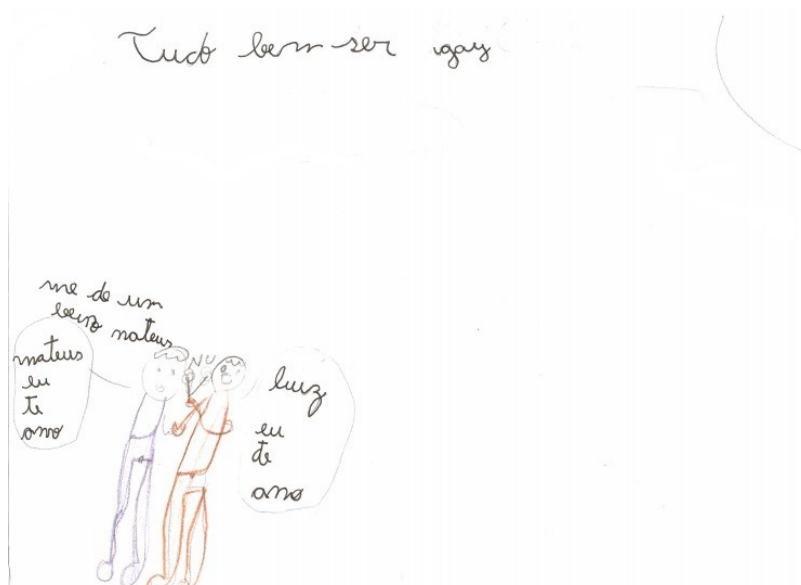 Tudo bem ser gay
me de um
beizo mateus
mateus
eu
te
amo
NU
luiz
eu
de
amo